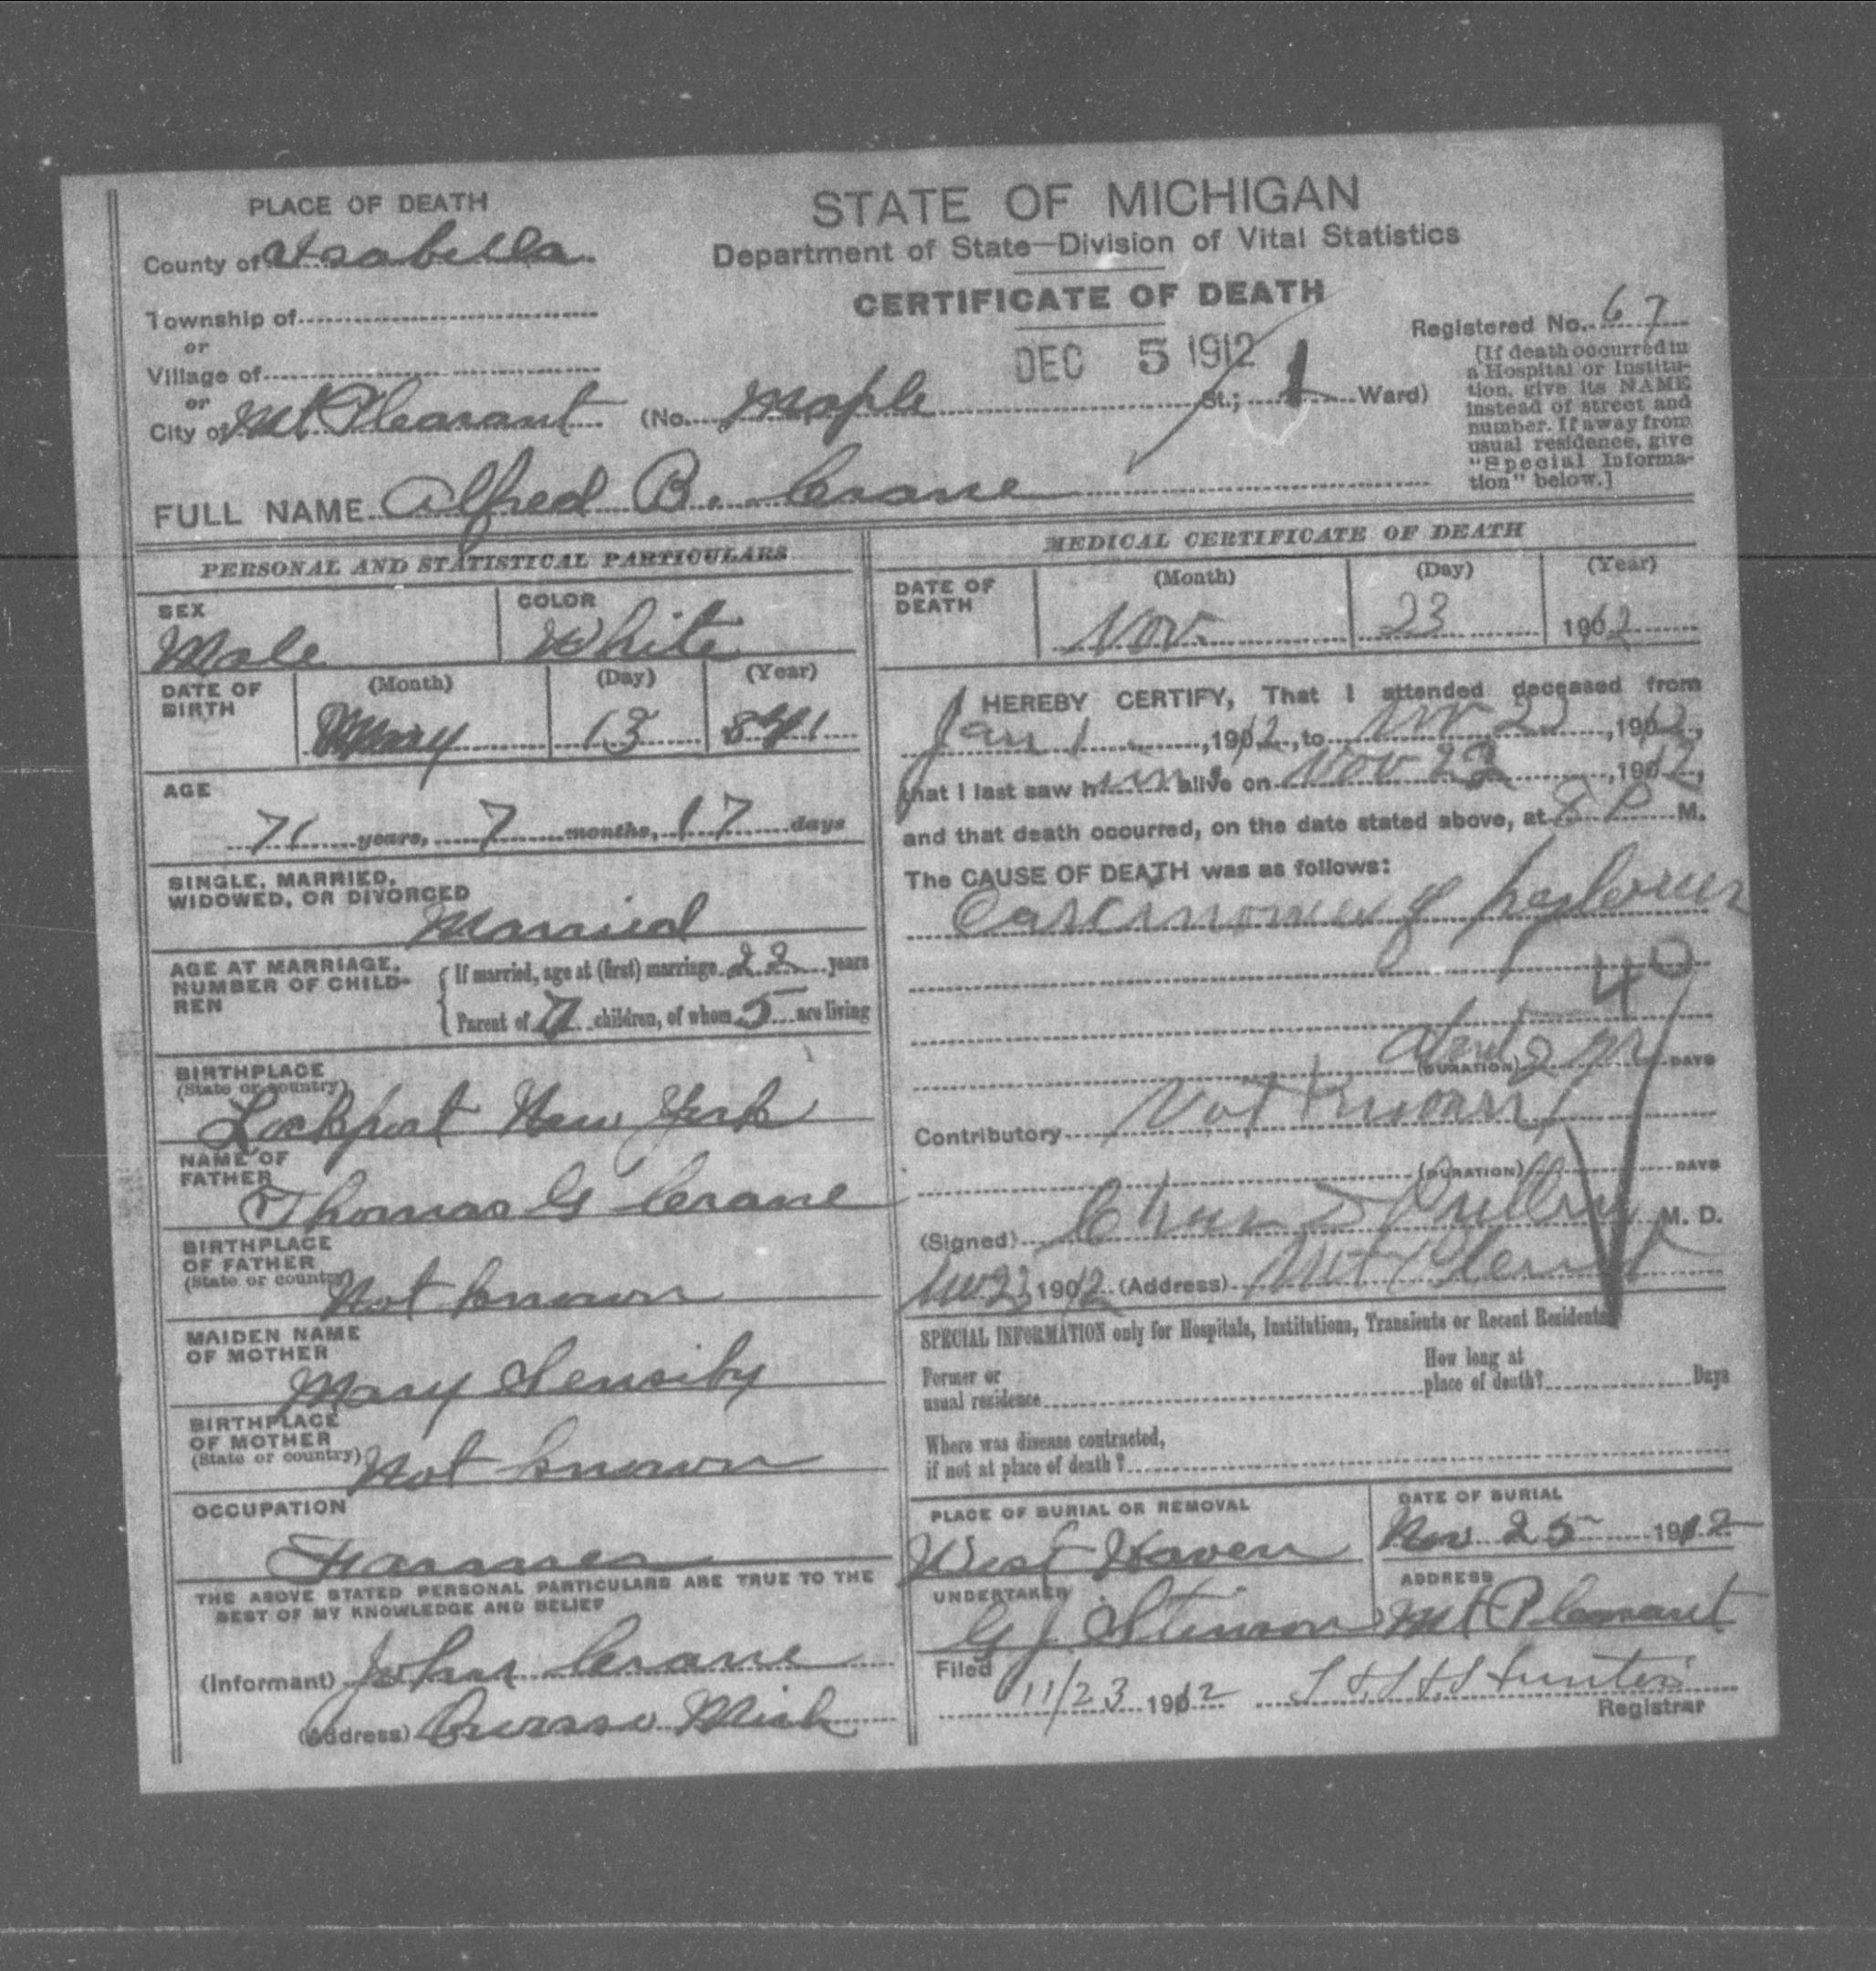 PLACE OF DEATH
County of Isabella
Township of
or
Village of
or
City of Mt Pleasant
STATE OF MICHIGAN
Department of State—Division of Vital Statistics
CERTIFICATE OF DEATH
DEC 5 1912
(No. Maple St.; 1 Ward)
Registered No. 67
[If death occurred in
a Hospital or Institu-
tion, give its NAME
instead of street and
number. If away from
usual residence, give
"Special Informa-
tion" below.]
FULL NAME Alfred B. Crane
PERSONAL AND STATISTICAL PARTICULARS
SEX
Male
COLOR
White
DATE OF
BIRTH
(Month) (Day) (Year)
13 841
AGE
71 years, 7 months, 17 days
SINGLE, MARRIED,
WIDOWED, OR DIVORCED
Married
AGE AT MARRIAGE,
NUMBER OF CHILD-
REN
If married, age at (first) marriage 22 years
Parent of 7 children, of whom 5 are living
BIRTHPLACE
(State or country)
Lockport New York
NAME OF
FATHER
Thomas G Crane
BIRTHPLACE
OF FATHER
(State or country)
Not known
MAIDEN NAME
OF MOTHER
Mary
BIRTHPLACE
OF MOTHER
(State or country)
Not known
OCCUPATION
Farmer
THE ABOVE STATED PERSONAL PARTICULARS ARE TRUE TO THE
BEST OF MY KNOWLEDGE AND BELIEF
(Informant) John Crane
(Address) Mich
MEDICAL CERTIFICATE OF DEATH
DATE OF
DEATH
(Month) (Day) (Year)
Nov. 23 1912
I HEREBY CERTIFY, That I attended deceased from
Jan 1, 1912, to Nov 23, 1912,
that I last saw him alive on Nov 23, 1912,
and that death occurred, on the date stated above, at 8 P M.
The CAUSE OF DEATH was as follows:
Carcinoma of
40
(DURATION) 2 DAYS
Contributory Not Known
(DURATION) DAYS
(Signed) M. D.
Nov 23 1912 (Address) Mt Pleasant
SPECIAL INFORMATION only for Hospitals, Institutions, Transients or Recent Residents
Former or
usual residence
How long at
place of death? Days
Where was disease contracted,
if not at place of death?
PLACE OF BURIAL OR REMOVAL
West Haven
DATE OF BURIAL
Nov 25 1912
UNDERTAKER
G J. Stinson
ADDRESS
Mt Pleasant
Filed
11/23 1912
Hunter
Registrar